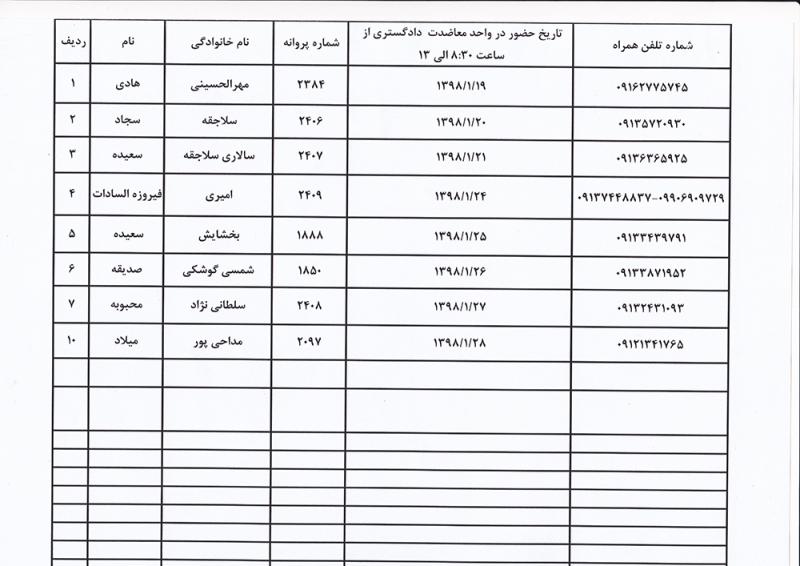 ردیف نام نام خانوادگی شماره پروانه تاریخ حضور در واحد معاضدت دادگستری از ساعت ۸:۳۰ الی ۱۳ شماره تلفن همراه
۱ هادی مهرالحسینی ۲۳۸۴ ۱۳۹۸/۱/۱۹ ۰۹۱۶۲۷۷۵۷۴۵
۲ سجاد سلاجقه ۲۴۰۶ ۱۳۹۸/۱/۲۰ ۰۹۱۳۵۷۲۰۹۳۰
۳ سعیده سالاری سلاجقه ۲۴۰۷ ۱۳۹۸/۱/۲۱ ۰۹۱۳۶۳۶۵۹۲۵
۴ فیروزه السادات امیری ۲۴۰۹ ۱۳۹۸/۱/۲۴ ۰۹۱۳۷۴۴۸۸۳۷-۰۹۹۰۶۹۰۹۷۲۹
۵ سعیده بخشایش ۱۸۸۸ ۱۳۹۸/۱/۲۵ ۰۹۱۳۳۴۳۹۷۹۱
۶ صدیقه شمسی گوشکی ۱۸۵۰ ۱۳۹۸/۱/۲۶ ۰۹۱۳۳۸۷۱۹۵۲
۷ محبوبه سلطانی نژاد ۲۴۰۸ ۱۳۹۸/۱/۲۷ ۰۹۱۳۲۴۳۱۰۹۳
۱۰ میلاد مداحی پور ۲۰۹۷ ۱۳۹۸/۱/۲۸ ۰۹۱۲۱۳۴۱۷۶۵